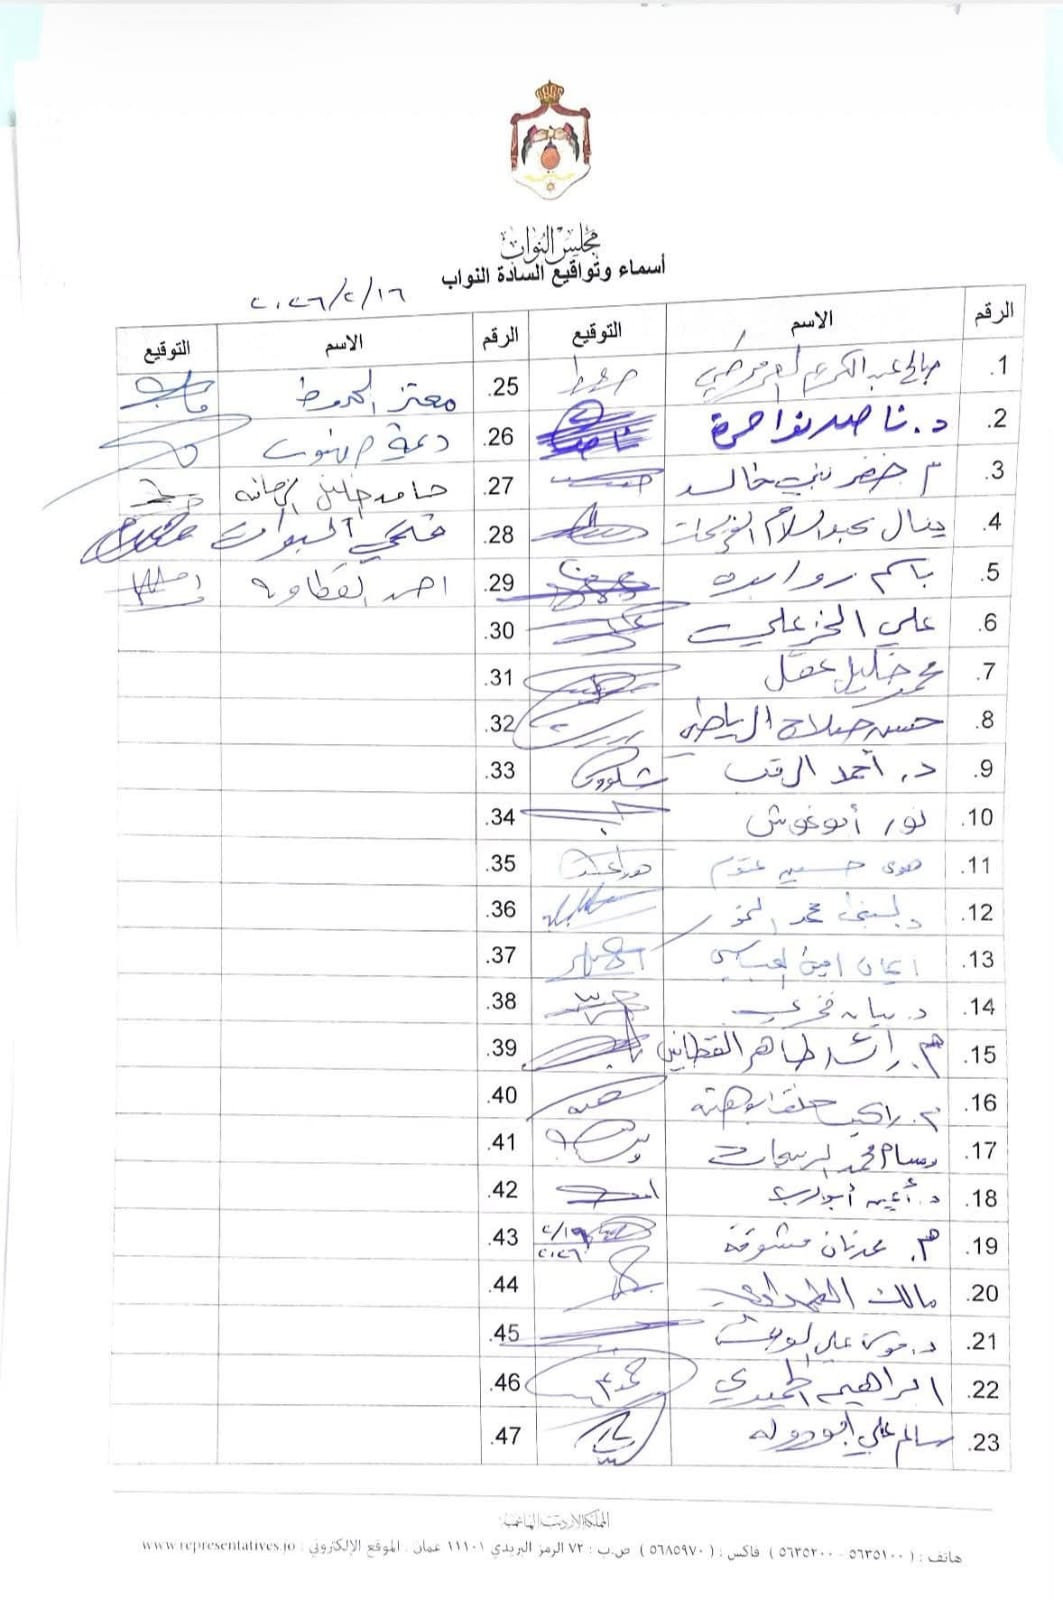 مجلس النواب
أسماء وتواقيع السادة النواب
٢٠٢٦/٢/١٦
الرقم الاسم التوقيع الرقم الاسم التوقيع
1. صالح عبد الكريم العرموطي 25. معتز الهروط
2. د. ناصر نواصرة 26. ديمة طهبوب
3. م خضر بني خالد 27. حامد
4. ينال عبد السلام الفريحات 28. فتحي البوات
5. باسم روابده 29. احمد القطاونه
6. علي الخزعلي 30.
7. محمد خليل عقل 31.
8. حسن صلاح الرياطي 32.
9. د. أحمد الرقب 33.
10. نور أبو غوش 34.
11. هدى حسين عتوم 35.
12. محمد 36.
13. ايمان امين العباسي 37.
14. د. بيان فخري 38.
15. م. راشد طاهر القطاني 39.
16. م. راكين خلف ابو هنية 40.
17. وسام محمد الربيحات 41.
18. د. أيمن أبو الرب 42.
19. م. عدنان مشوقة ٢/١٦ ٢٠٢٦ 43.
20. مالك الطهراوي 44.
21. د. موسى علي الوحش 45.
22. ابراهيم الحميدي 46.
23. سالم علي أبو دولة 47.
المملكة الاردنية الهاشمية
هاتف : ( ٥٦٣٥١٠٠ - ٥٦٣٥٢٠٠ ) فاكس : ( ٥٦٨٥٩٧٠ ) ص.ب : ٧٢ الرمز البريدي ١١١٠١ عمان . الموقع الإلكتروني : www.representatives.jo